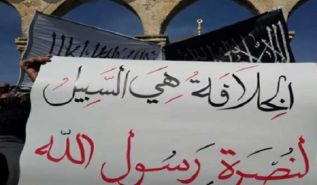 الخِلافَةُ هِيَ السَّبِيلُ
لنُصْرَةِ رَسُولِ اللَّهِ